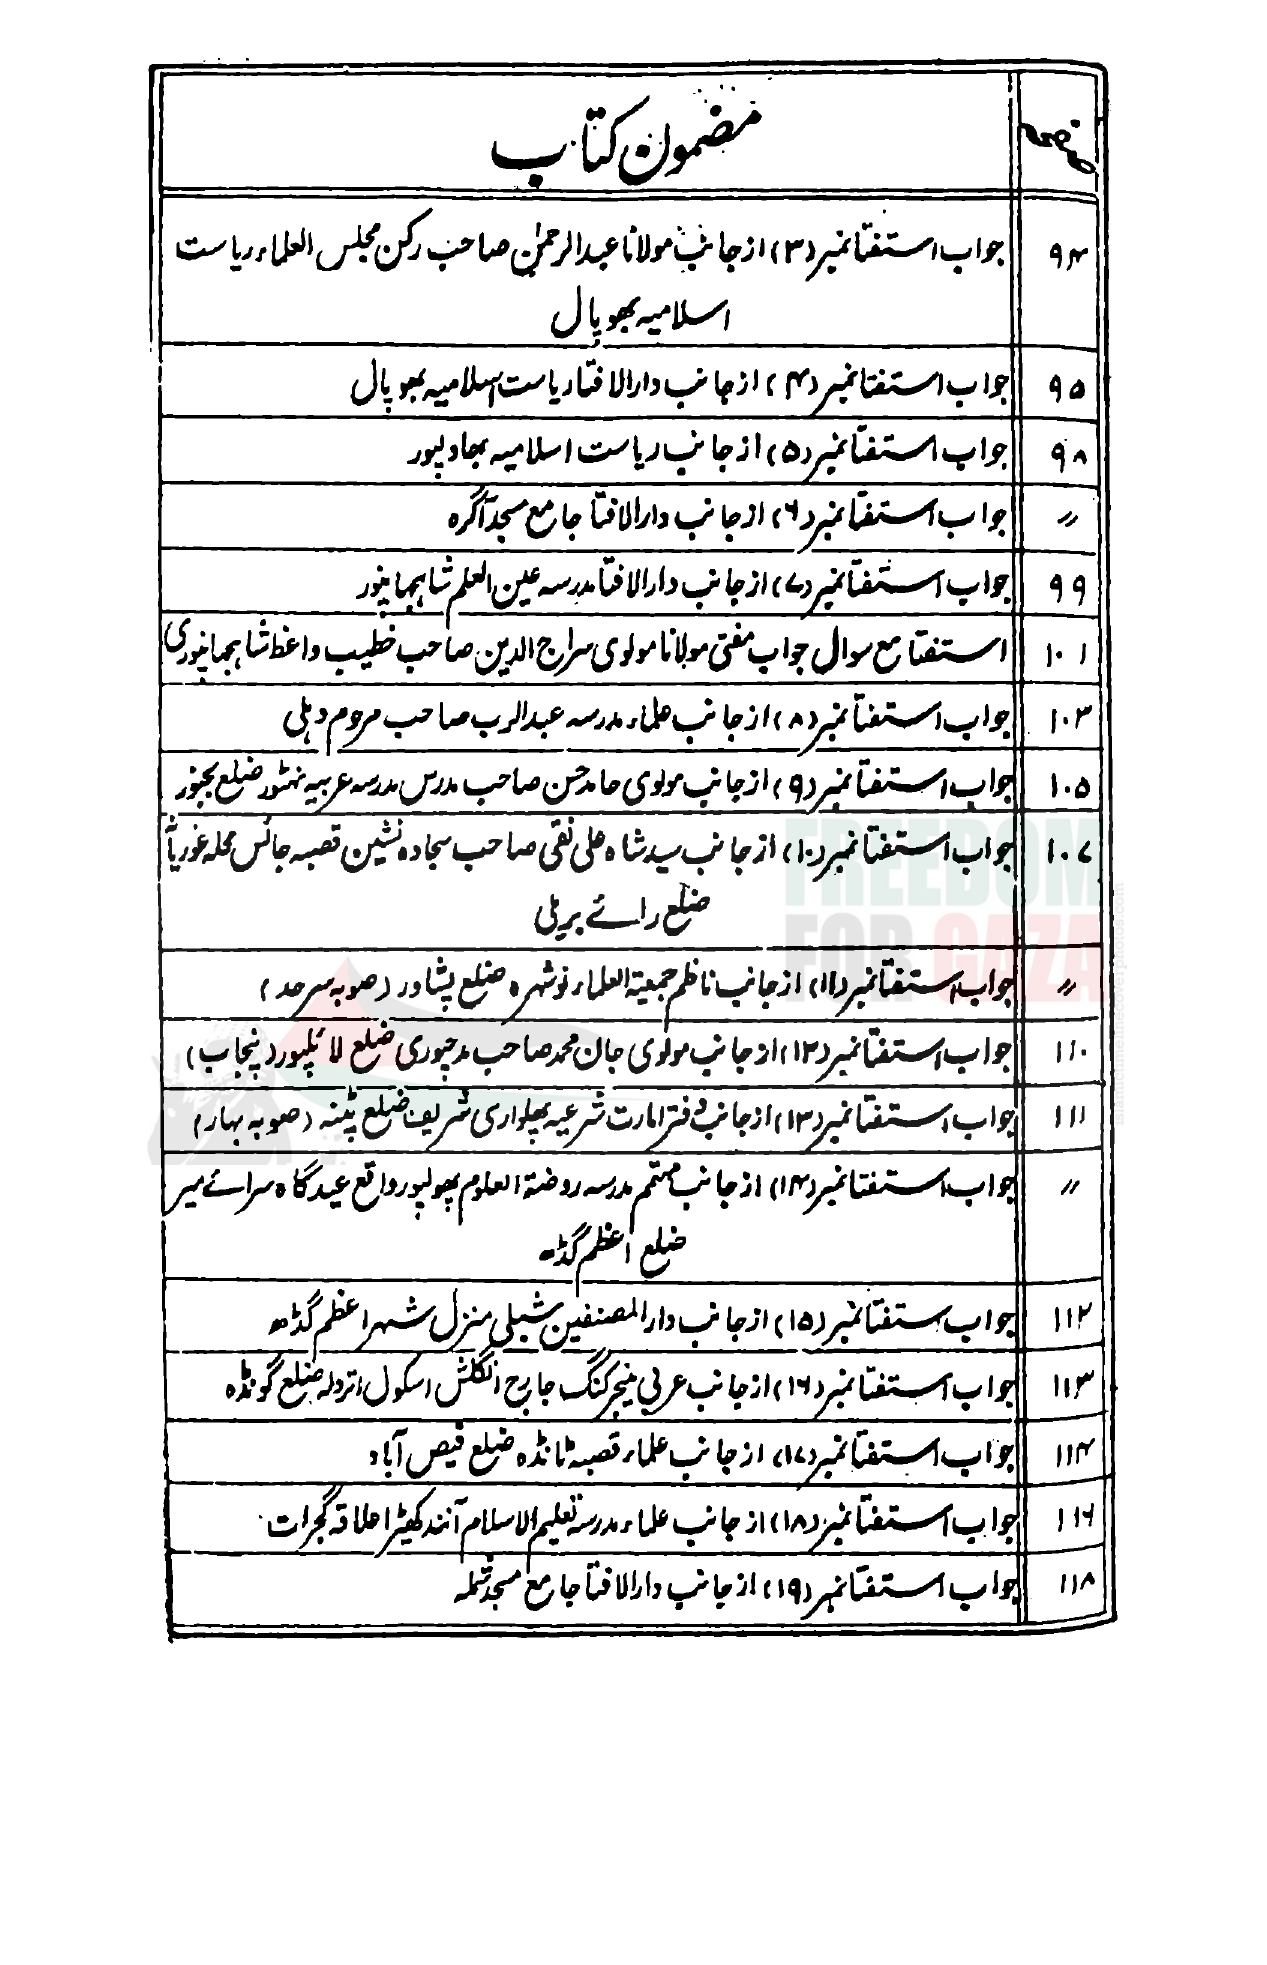 صفحہ مضمون کتاب
۹۴ جواب استفتا نمبر (۳) از جانب مولانا عبدالرحمٰن صاحب رکن مجلس العلماء ریاست
اسلامیہ بھوپال
۹۵ جواب استفتا نمبر (۴) از جانب دارالافتا ریاست اسلامیہ بھوپال
۹۸ جواب استفتا نمبر (۵) از جانب ریاست اسلامیہ بھاولپور
〃 جواب استفتا نمبر (۶) از جانب دارالافتا جامع مسجد آگرہ
۹۹ جواب استفتا نمبر (۷) از جانب دارالافتا مدرسہ عین العلم شاہجہانپور
۱۰۱ استفتا مع سوال جواب مفتی مولانا مولوی سراج الدین صاحب خطیب واعظ شاہجہانپوری
۱۰۳ جواب استفتا نمبر (۸) از جانب علماء مدرسہ عبدالرب صاحب مرحوم دہلی
۱۰۵ جواب استفتا نمبر (۹) از جانب مولوی حامد حسن صاحب مدرس مدرسہ عربیہ نہٹور ضلع بجنور
۱۰۷ جواب استفتا نمبر (۱۰) از جانب سید شاہ علی نقی صاحب سجادہ نشین قصبہ جائس محلہ
ضلع رائے بریلی
〃 جواب استفتا نمبر (۱۱) از جانب ناظم جمعیۃ العلماء نوشہرہ ضلع پشاور (صوبہ سرحد)
۱۱۰ جواب استفتا نمبر (۱۲) از جانب مولوی جان محمد صاحب ضلع لائلپور (پنجاب)
۱۱۱ جواب استفتا نمبر (۱۳) از جانب دفتر امارت شرعیہ پھلواری شریف ضلع پٹنہ (صوبہ بہار)
〃 جواب استفتا نمبر (۱۴) از جانب مہتمم مدرسہ روضۃ العلوم پھولپور واقع عیدگاہ سرائے میر
ضلع اعظم گڈھ
۱۱۲ جواب استفتا نمبر (۱۵) از جانب دار المصنفین شبلی منزل شہر اعظم گڈھ
۱۱۳ جواب استفتا نمبر (۱۶) از جانب عربی ٹیچر کنگ جارج انگلش اسکول اترولہ ضلع گونڈہ
۱۱۴ جواب استفتا نمبر (۱۷) از جانب علماء قصبہ ٹانڈہ ضلع فیض آباد
۱۱۶ جواب استفتا نمبر (۱۸) از جانب علماء مدرسہ تعلیم الاسلام آنند کھیڑا علاقہ گجرات
۱۱۸ جواب استفتا نمبر (۱۹) از جانب دارالافتا جامع مسجد شملہ
FREEDOM
FOR GAZA